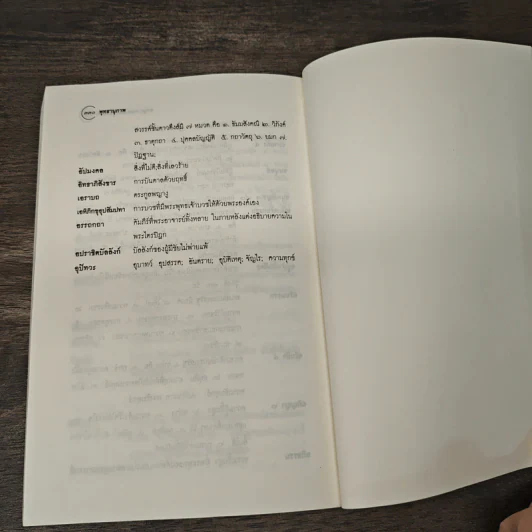 ๓๓๐ พุทธานุภาพ
สวรรค์ชั้นดาวดึงส์มี ๗ หมวด คือ ๑. ธัมมสังคณี ๒. วิภังค์
๓. ธาตุกถา ๔. ปุคคลบัญญัติ ๕. กถาวัตถุ ๖. ยมก ๗.
ปัฏฐาน;
อัปมงคล สิ่งที่ไม่ดี;สิ่งที่เลวร้าย
อิทธาภิสังขาร การบันดาลด้วยฤทธิ์
เอรามถ ตระกูลพญางู
เอหิภิกขุอุปสัมปทา การบวชที่มีพระพุทธเจ้าบวชให้ด้วยพระองค์เอง
อรรถกถา คัมภีร์ที่พระอาจารย์ทั้งหลาย ในกาลหลังแต่งอธิบายความใน
พระไตรปิฎก
อปราชิตบัลลังก์ บัลลังก์ของผู้มีชัยไม่พ่ายแพ้
อุปัทวะ อุบาทว์ อุปสรรค; อันตราย; อุบัติเหตุ; จัญไร; ความทุกข์